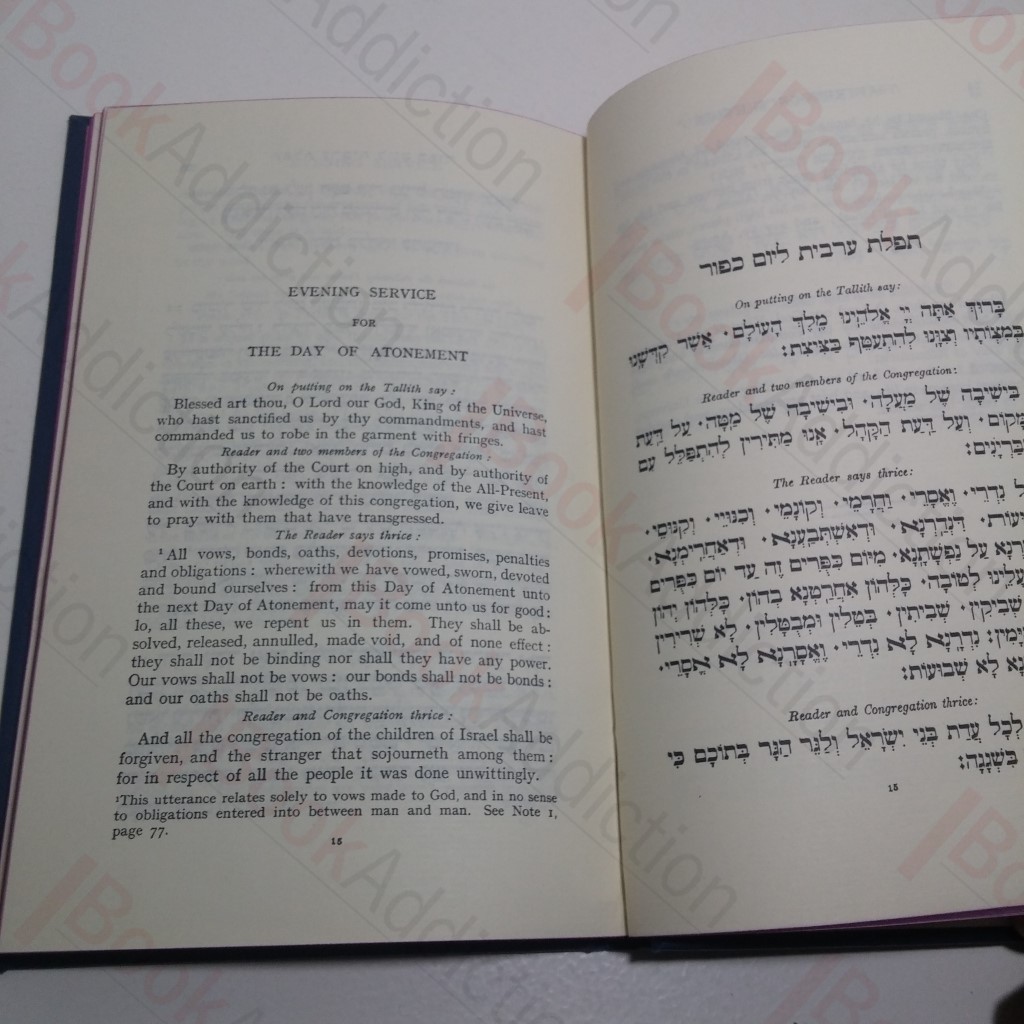 EVENING SERVICE
FOR
THE DAY OF ATONEMENT
On putting on the Tallith say :
Blessed art thou, O Lord our God, King of the Universe,
who hast sanctified us by thy commandments, and hast
commanded us to robe in the garment with fringes.
Reader and two members of the Congregation :
By authority of the Court on high, and by authority of
the Court on earth : with the knowledge of the All-Present,
and with the knowledge of this congregation, we give leave
to pray with them that have transgressed.
The Reader says thrice :
¹All vows, bonds, oaths, devotions, promises, penalties
and obligations : wherewith we have vowed, sworn, devoted
and bound ourselves : from this Day of Atonement unto
the next Day of Atonement, may it come unto us for good :
lo, all these, we repent us in them. They shall be ab-
solved, released, annulled, made void, and of none effect :
they shall not be binding nor shall they have any power.
Our vows shall not be vows : our bonds shall not be bonds :
and our oaths shall not be oaths.
Reader and Congregation thrice :
And all the congregation of the children of Israel shall be
forgiven, and the stranger that sojourneth among them :
for in respect of all the people it was done unwittingly.
¹This utterance relates solely to vows made to God, and in no sense
to obligations entered into between man and man. See Note 1,
page 77.
15
תפלת ערבית ליום כפור
On putting on the Tallith say:
בָּרוּךְ אַתָּה יְיָ אֱלֹהֵינוּ מֶלֶךְ הָעוֹלָם· אֲשֶׁר קִדְּשָׁנוּ
בְּמִצְוֹתָיו וְצִוָּנוּ לְהִתְעַטֵּף בַּצִּיצִת:
Reader and two members of the Congregation:
בִּישִׁיבָה שֶׁל מַעְלָה· וּבִישִׁיבָה שֶׁל מַטָּה· עַל דַּעַת
וְעַל דַּעַת הַקָּהָל· אָנוּ מַתִּירִין לְהִתְפַּלֵּל עִם
The Reader says thrice:
נִדְרֵי· וֶאֱסָרֵי· וַחֲרָמֵי· וְקוֹנָמֵי· וְכִנּוּיֵי· וְקִנּוּסֵי·
דִּנְדַרְנָא· וּדְאִשְׁתַּבַּעְנָא· וּדְאַחֲרִימְנָא·
עַל נַפְשָׁתָנָא· מִיּוֹם כִּפֻּרִים זֶה עַד יוֹם כִּפֻּרִים
עָלֵינוּ לְטוֹבָה· כֻּלְּהוֹן אִחֲרַטְנָא בְהוֹן· כֻּלְּהוֹן יְהוֹן
שְׁבִיקִין· שְׁבִיתִין· בְּטֵלִין וּמְבֻטָּלִין· לָא שְׁרִירִין
נִדְרָנָא לָא נִדְרֵי· וֶאֱסָרָנָא לָא אֱסָרֵי·
לָא שְׁבוּעוֹת:
Reader and Congregation thrice:
לְכָל עֲדַת בְּנֵי יִשְׂרָאֵל וְלַגֵּר הַגָּר בְּתוֹכָם כִּי
בִּשְׁגָגָה:
15
BookAddiction